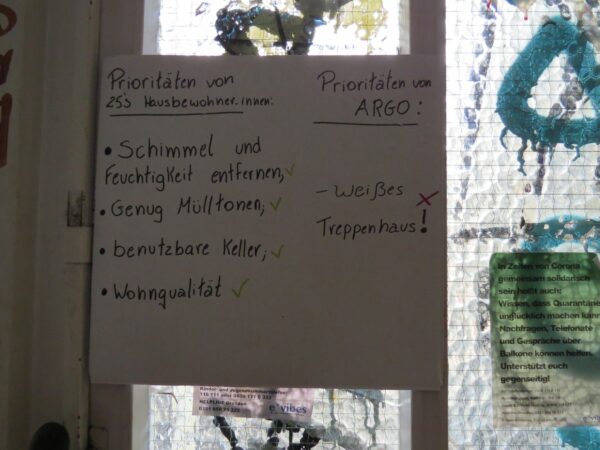 Prioritäten von
25's Hausbewohner.innen:
• Schimmel und
Feuchtigkeit entfernen, ✓
• Genug Mülltonen, ✓
• benutzbare Keller, ✓
• Wohnqualität ✓
Prioritäten von
ARGO:
- weißes x
Treppenhaus!
In Zeiten von Corona
gemeinsam solidarisch
sein heißt auch:
Wissen, dass Quarantäne
unglücklich machen kann
Nachfragen, Telefonate
und Gespräche über
Balkone können helfen.
Unterstützt euch
gegenseitig!
e*vibes